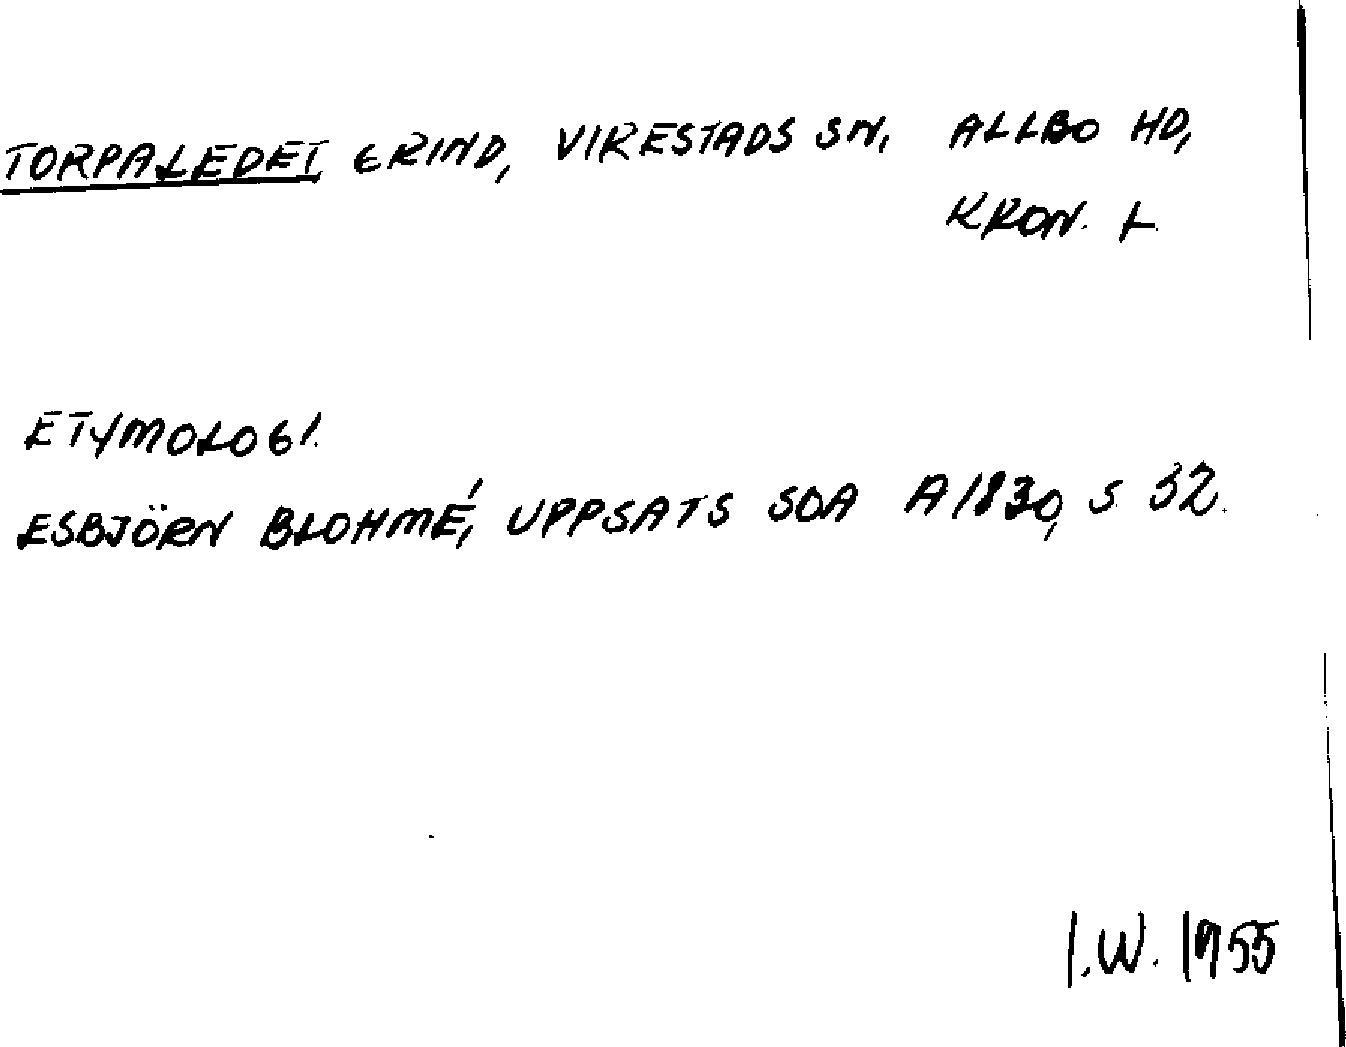 TORPALEDET GRIND, VIRESTADS SN, ALLBO HD,
KRON. L.
ETYMOLOGI.
ESBJÖRN BLOHMÉ, UPPSATS SOA A1830, S 32.
I.W. 1955